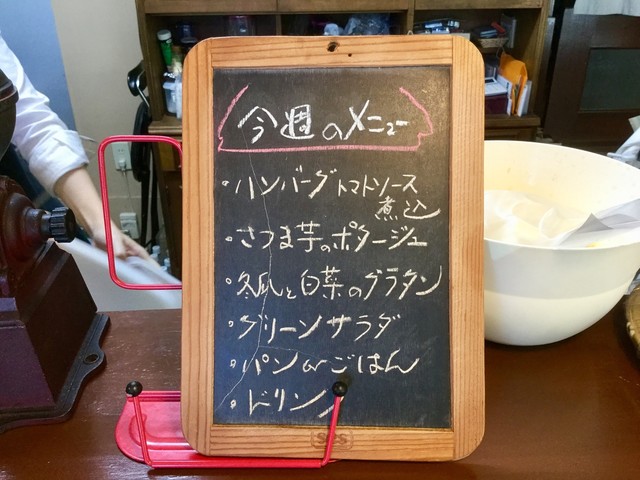 今週のメニュー
・ハンバーグトマトソース
煮込
・さつま芋のポタージュ
・冬瓜と白菜のグラタン
・グリーンサラダ
・パン or ごはん
・ドリンク